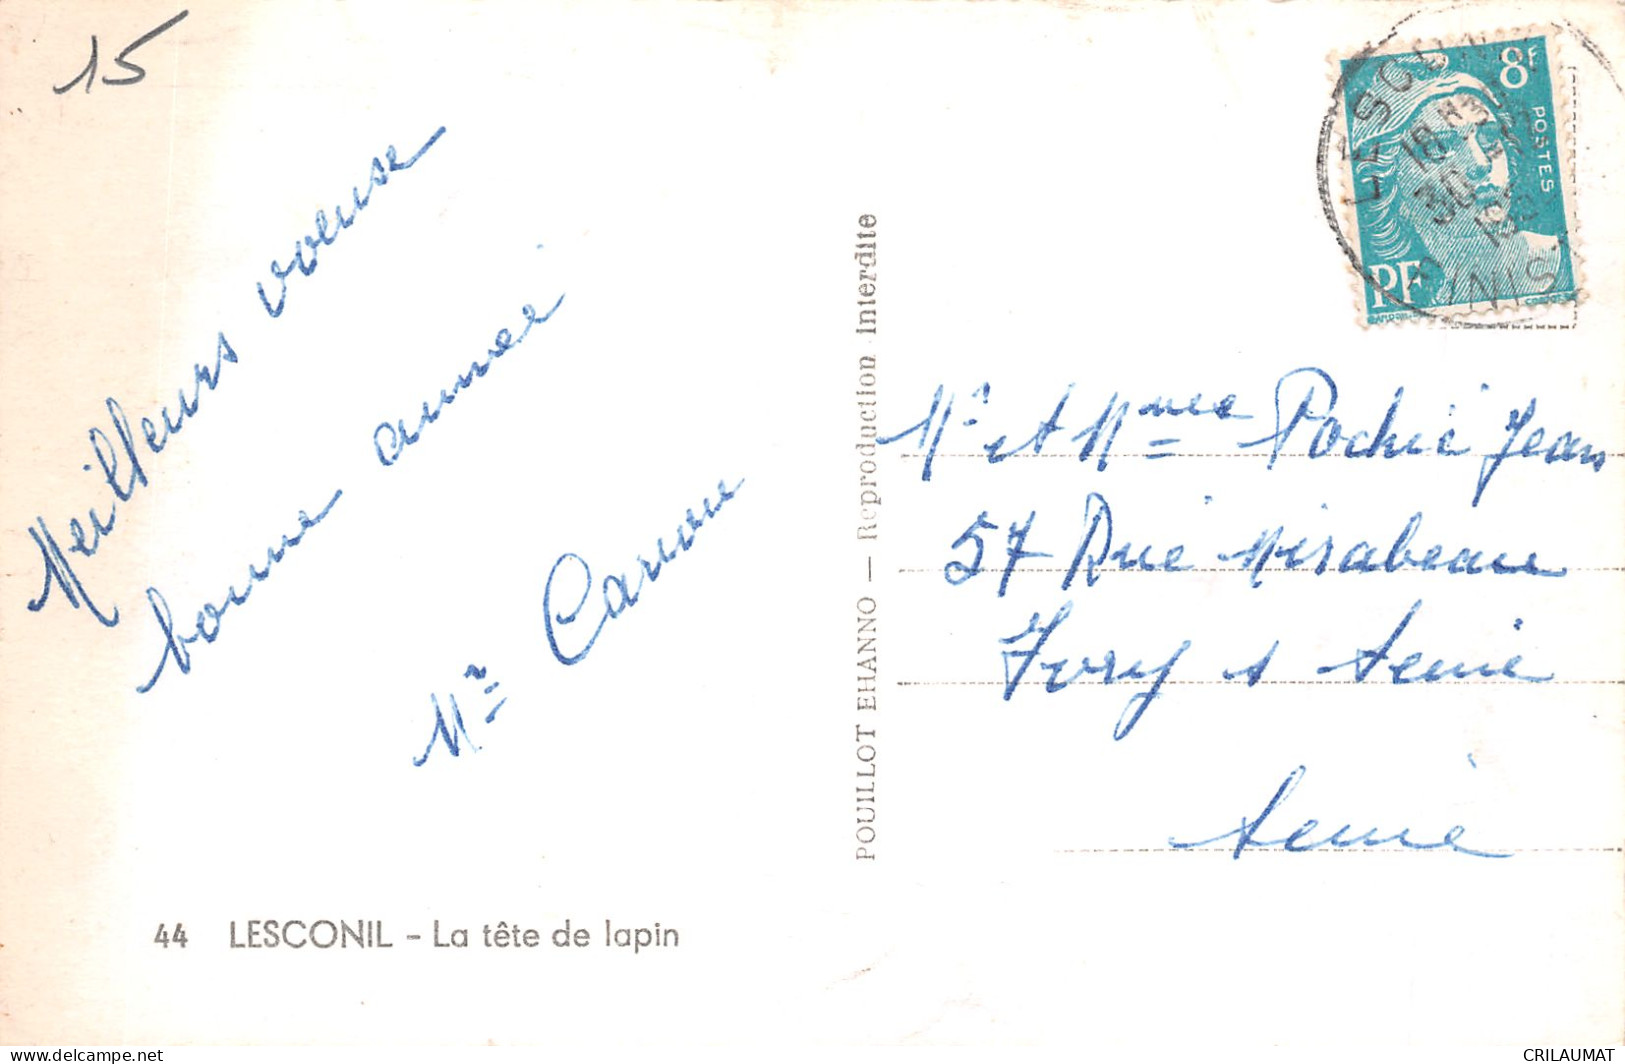 15
Meilleurs voeuse
bonne année
Mr Carrou
44 LESCONIL - La tête de lapin
POUILLOT EHANNO — Reproduction Interdite
8F
POSTES
RF
LESCONIL
18H
30
FINIST
Mr et Mme Pochic Jean
57 Rue Mirabeau
Ivry s Seine
Seine
delcampe.net
CRILAUMAT